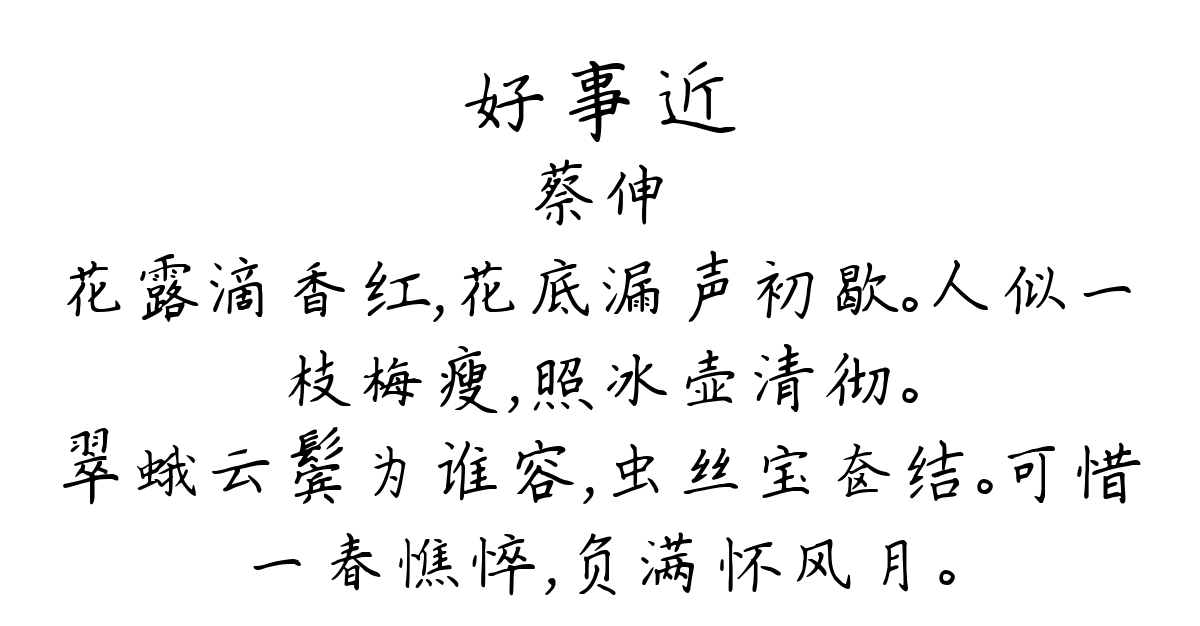 好事近
蔡伸
花露滴香红,花底漏声初歇。人似一
枝梅瘦,照冰壶清彻。
翠蛾云鬓为谁容,虫丝宝奁结。可惜
一春憔悴,负满怀风月。